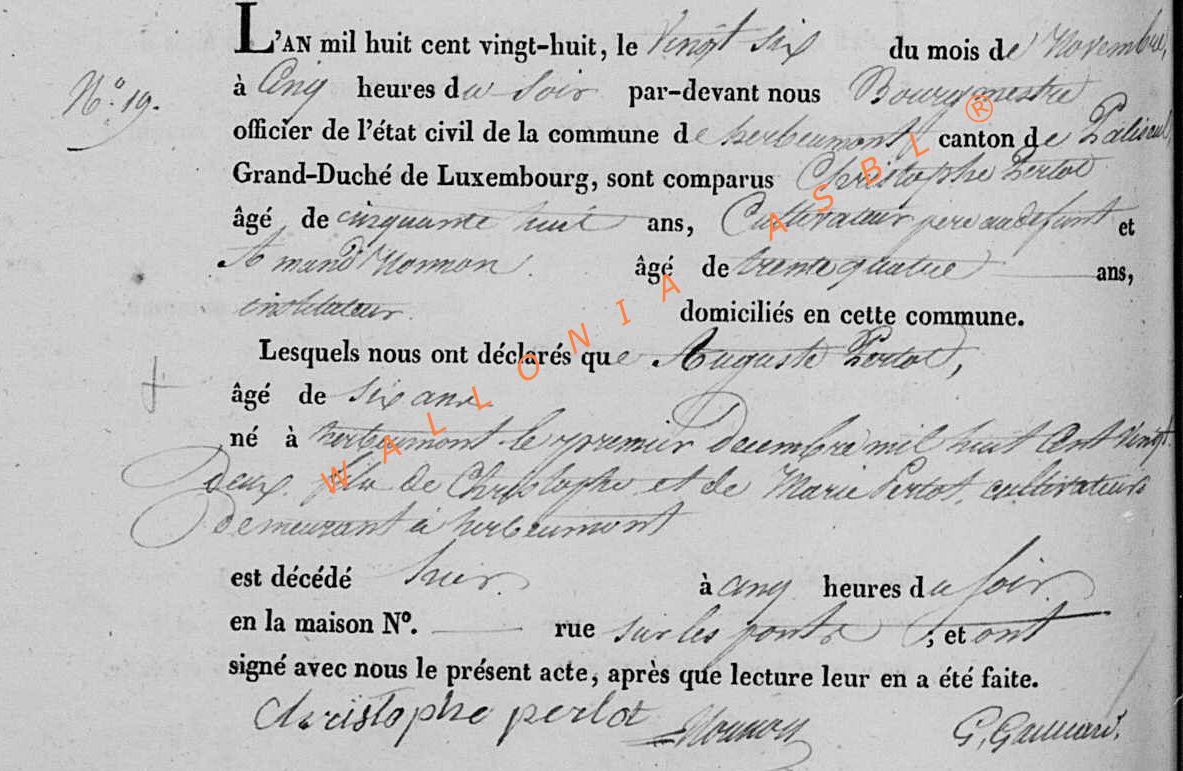 L'AN mil huit cent vingt-huit, le Vingt six du mois de Novembre,
N.o 19. à Cinq heures du Soir par-devant nous Bourgmestre
officier de l'état civil de la commune de herbeumont, canton de Paliseul,
Grand-Duché de Luxembourg, sont comparus Christophe Perlot
âgé de cinquante huit ans, Cultivateur père au défunt et
Amand Nonnon. âgé de trente quatre ans,
instituteur. domiciliés en cette commune.
Lesquels nous ont déclarés que Auguste Perlot,
âgé de Six ans
né à herbeumont le premier Decembre mil huit Cent Vingt
deux. fils de Christophe et de Marie Perlot, cultivateurs
demeurant à herbeumont
est décédé hier à cinq heures du Soir.
en la maison No. rue sur les ponts ; et ont
signé avec nous le présent acte, après que lecture leur en a été faite.
christophe perlot Nonnon G.
WALLONIA ASBL ®